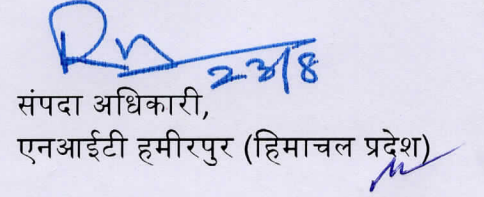 23/8
संपदा अधिकारी,
एनआईटी हमीरपुर (हिमाचल प्रदेश)